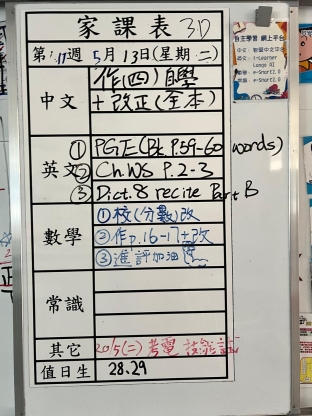 家課表 3D
第17週 5月13日(星期二)
中文
作(四)自學
+改正(全本)
英文
① PGE(Bk P.59-60 words)
② Ch. WS P.2-3
③ Dict.8 recite Part B
數學
①校(分數)改
②作p.16-17+改
③進評加油
常識
其它
20/5(二)考電
值日生
28.29
自主學習 網上平台